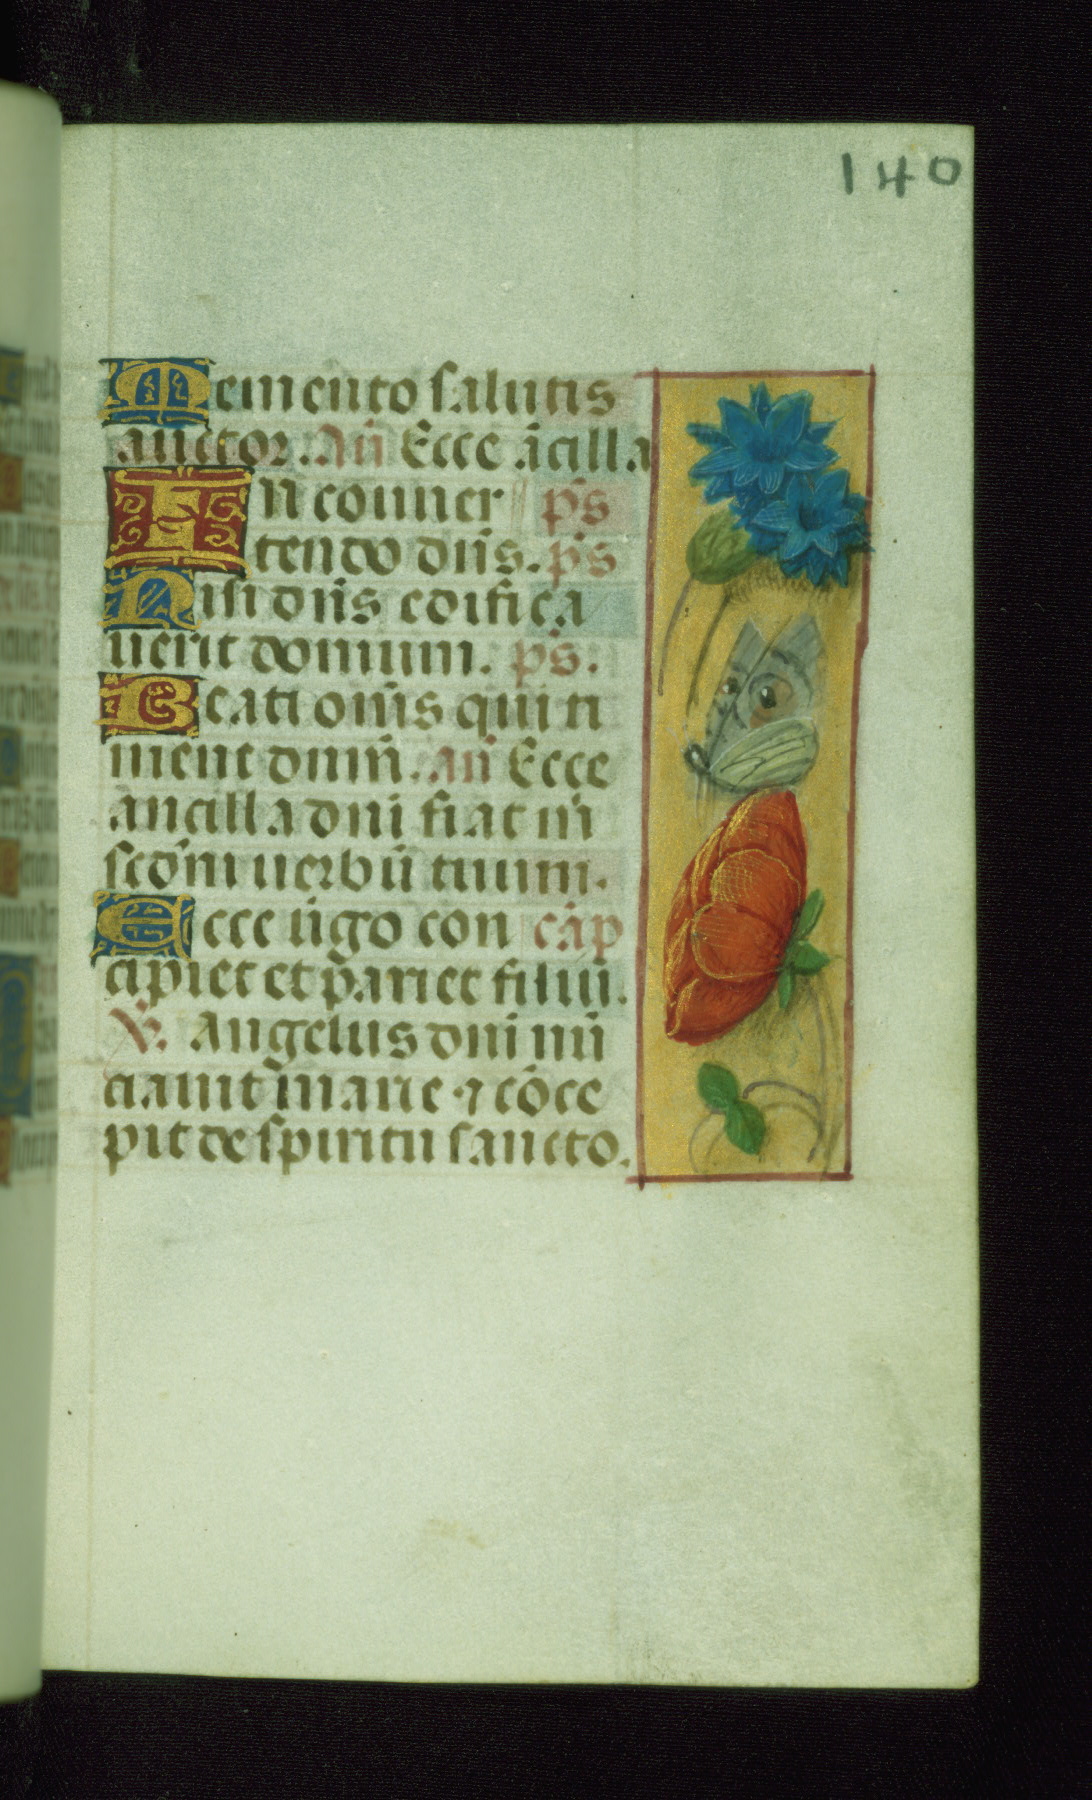 140
Memento salutis
auctor. Añ Ecce ācilla
In conuer ps̄
tendo dn̄s. ps̄
Nisi dn̄s edifica
uerit domum. ps̄.
Beati om̄s qui ti
ment dn̄m̄. añ Ecce
ancilla dn̄i fiat m̄
scd̄m uerbū tuum.
Ecce uirgo con cāp
cipiet et pariet filiū.
R̄. Angelus dn̄i nū
ciauit marie ⁊ cōce
pit de spiritu sancto.